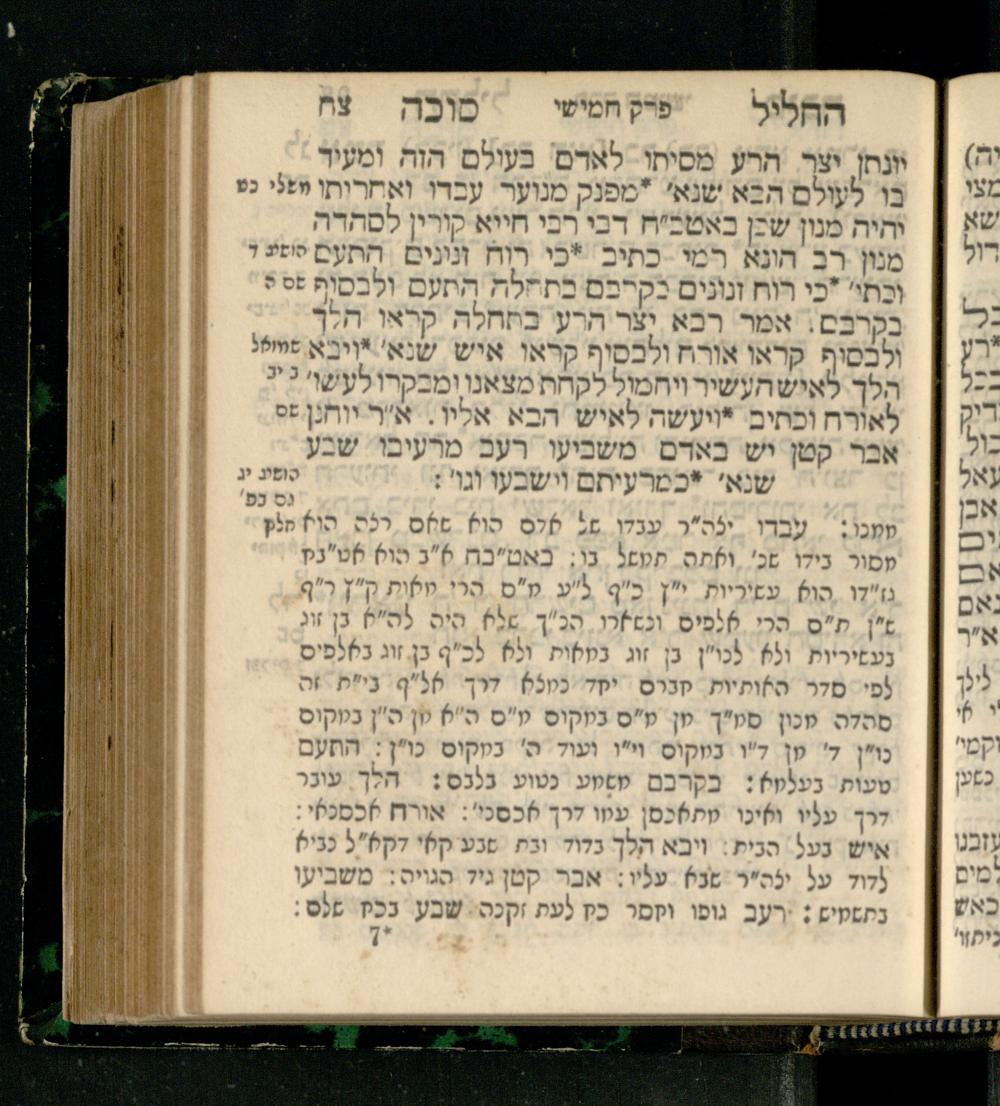 החליל פרק חמישי סוכה צח
יונתן יצר הרע מסיתו לאדם בעולם הזה ומעיד
בו לעולם הבא שנא׳ *מפנק מנוער עבדו ואחריתו משלי כט
יהיה מנון שכן באטב״ח דבי רבי חייא קורין לסהדה
מנון רב הונא רמי כתיב *כי רוח זנונים התעם הושע ד
וכתי׳ *כי רוח זנונים בקרבם בתחלה התעם ולבסוף שם ה
בקרבם. אמר רבא יצר הרע בתחלה קראו הלך
ולבסוף קראו אורח ולבסוף קראו איש שנא׳ *ויבא שמואל
הלך לאיש העשיר ויחמול לקחת מצאנו ומבקרו לעשו׳ ב יב
לאורח וכתיב *ויעשה לאיש הבא אליו. א״ר יוחנן שם
אבר קטן יש באדם משביעו רעב מרעיבו שבע
שנא׳ *כמרעיתם וישבעו וגו׳: הושע יג
גם בפ׳
ממנו: עבדו יצה״ר עבדו של אדם הוא שאם רצה הוא חלק
מסור בידו שנ׳ ואתה תמשל בו: באט״בח א״ב הוא אט״בח
גז״דו הוא עשיריות י״ץ כ״ף ל״ע מ״ס הרי מאות ק״ץ ר״ף
ש״ן ת״ם הרי אלפים ונשארו הנ״ך שלא היה לה״א בן זוג
בעשיריות ולא לנו״ן בן זוג במאות ולא לכ״ף בן זוג באלפים
לפי סדר האותיות חברם יחד כמלא דרך אל״ף בי״ת זה
סהדה מנון סמ״ך מן מ״ס במקום מ״ם ה״א מן ה״ן במקום
נו״ן ד׳ מן ד״ו במקום וי״ו ועוד ה׳ במקום נו״ן: התעם
טעות בעלמא: בקרבם משמע נטוע בלבם: הלך עובר
דרך עליו ואינו מתאכסן עמו דרך אכסנ׳: אורח אכסנאי:
איש בעל הבית: ויבא הלך בדוד ובת שבע קאי דקא״ל נביא
לדוד על יצה״ר שבא עליו: אבר קטן גיד הגויה: משביעו
בתשמיש: רעב גופו וחסר כח לעת זקנה שבע בכח שלם:
7*